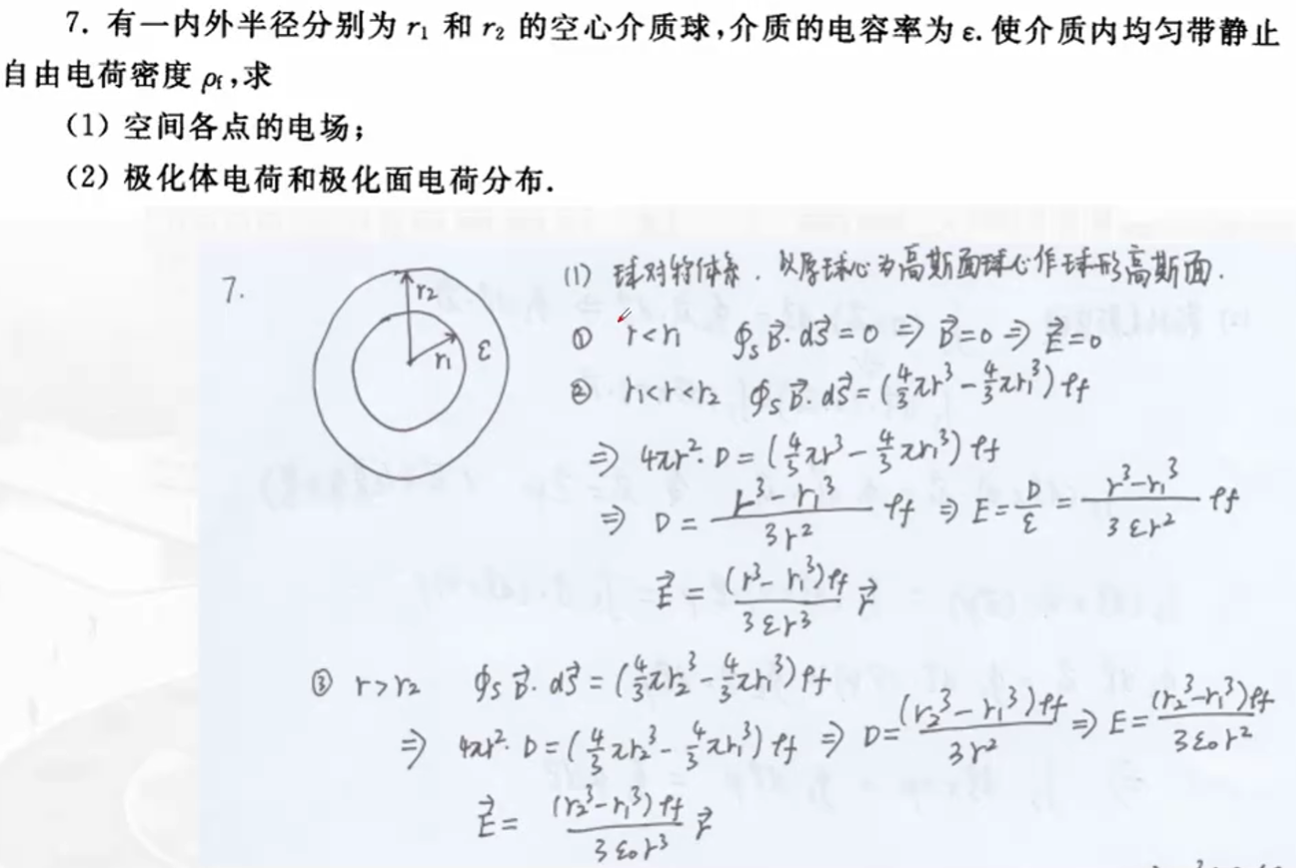 7. 有一内外半径分别为 r₁ 和 r₂ 的空心介质球,介质的电容率为 ε. 使介质内均匀带静止
自由电荷密度 ρf,求
(1) 空间各点的电场;
(2) 极化体电荷和极化面电荷分布.
7.
r₂
r₁ ε
(1) 球对称体系. 以原球心为高斯面球心作球形高斯面.
① r<r₁ ∮s D⃗·dS⃗=0 ⇒ D⃗=0 ⇒ E⃗=0
② r₁<r<r₂ ∮s D⃗·dS⃗=(4/3 πr³ − 4/3 πr₁³) ρf
⇒ 4πr²·D=(4/3 πr³ − 4/3 πr₁³) ρf
⇒ D = (r³−r₁³)/(3r²) ρf ⇒ E = D/ε = (r³−r₁³)/(3εr²) ρf
E⃗ = (r³−r₁³)ρf/(3εr³) r⃗
③ r>r₂ ∮s D⃗·dS⃗ = (4/3 πr₂³ − 4/3 πr₁³) ρf
⇒ 4πr²·D=(4/3 πr₂³ − 4/3 πr₁³) ρf ⇒ D=(r₂³−r₁³)ρf/(3r²) ⇒ E=(r₂³−r₁³)ρf/(3ε₀r²)
E⃗ = (r₂³−r₁³)ρf/(3ε₀r³) r⃗